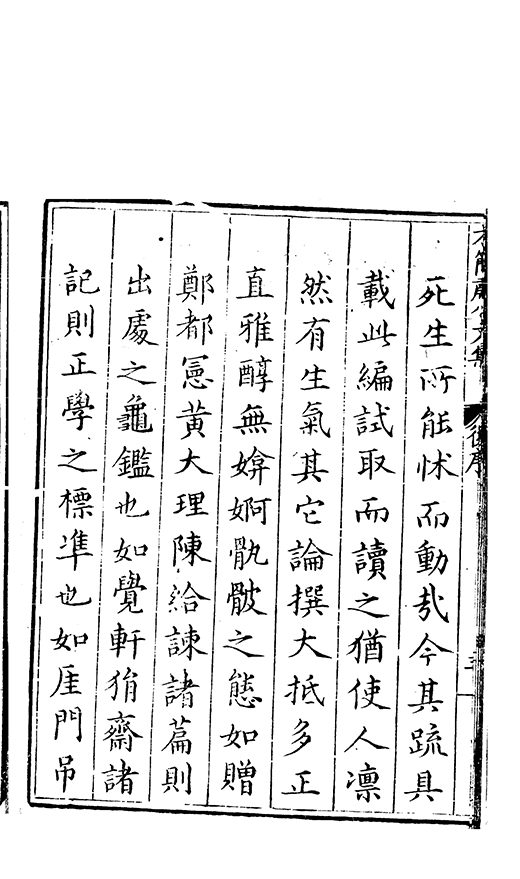 死生所能怵而動㢤今其疏具
載此編試取而讀之猶使人凛
然有生氣其它論撰大抵多正
直雅醇無媕婀骫骳之態如贈
鄭都憲黃大理陳給諫諸篇則
出處之龜鑑也如覺軒狷齋諸
記則正學之標準也如厓門吊